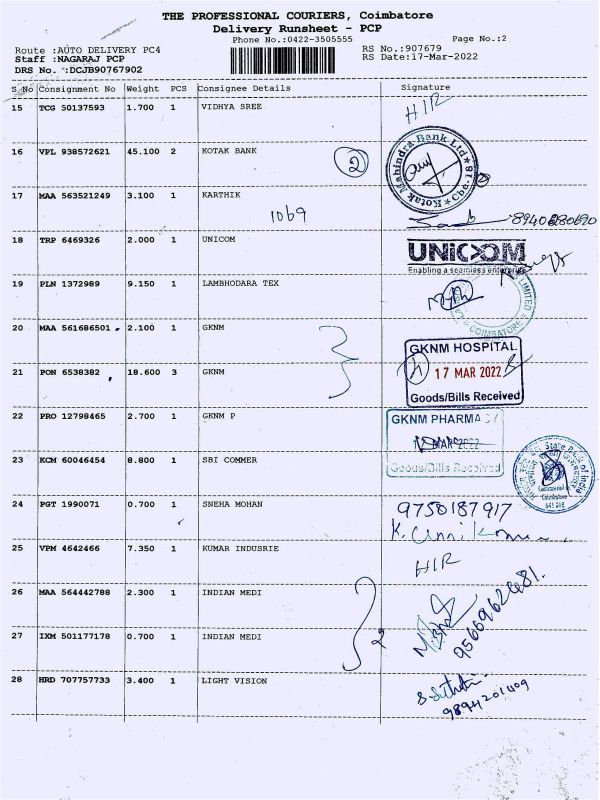 THE PROFESSIONAL COURIERS, Coimbatore
Delivery Runsheet - PCP
Phone No.:0422-3505555 Page No.:2
Route :AUTO DELIVERY PC4 RS No.:907679
Staff :NAGARAJ PCP RS Date:17-Mar-2022
DRS No. :DCJB90767902
S No Consignment No Weight PCS Consignee Details Signature
15 TCG 50137593 1.700 1 VIDHYA SREE HIR
16 VPL 938572621 45.100 2 KOTAK BANK 2
Kotak Mahindra Bank Ltd
17 MAA 563521249 3.100 1 KARTHIK
1069
18 TRP 6469326 2.000 1 UNICOM UNICOM
Enabling a seamless enterprise
19 PLN 1372989 9.150 1 LAMBHODARA TEX
LIMITED
COIMBATORE
20 MAA 561686501 2.100 1 GKNM
GKNM HOSPITAL
21 PON 6538382 18.600 3 GKNM 17 MAR 2022
Goods/Bills Received
22 PRO 12798465 2.700 1 GKNM P GKNM PHARMACY
MAR 2022
23 KCM 60046454 8.800 1 SBI COMMER Goods/Bills Received
State Bank of India
Coimbatore
641 018
24 PGT 1990071 0.700 1 SNEHA MOHAN 9750187917
25 VPM 4642466 7.350 1 KUMAR INDUSRIE HIR
26 MAA 564442788 2.300 1 INDIAN MEDI
27 IXM 501177178 0.700 1 INDIAN MEDI 2
28 HRD 707757733 3.400 1 LIGHT VISION
9894201409